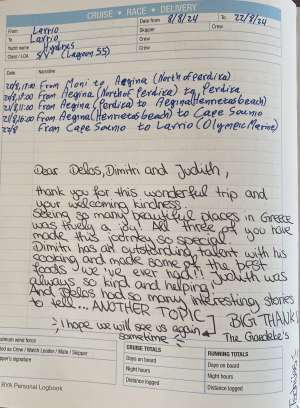 CRUISE • RACE • DELIVERY
From Lavrio
Date from 8/8/24 To 22/8/24
To Lavrio
Skipper Crew
Yacht name
Crew Crew
Class / LOA S/Y (Lagoon 55)
Crew
Date Narrative
20/8, 17.00 From Moni to Aegina (North of Perdika)
From Aegina (North of Perdika) to Perdika
From Aegina (Perdika) to Aegina
From Aegina to Cape Sounio
22/8 From Cape Sounio to Lavrio (Olympic Marine)
Dear Delos, Dimitri and Judith,
thank you for this wonderful trip and
your welcoming kindness.
Seeing so many beautiful places in Greece
was truely a joy! All three of you have
made this journey so special.
Dimitri has an outstanding talent with his
cooking and made some of the best
foods we've ever had!! Judith was
always so kind and helping.
And Delos had so many interesting stories
to tell... ANOTHER TOPIC
I hope we will see us again
sometime
BIG THANK
The
Maximum wind force
CRUISE TOTALS RUNNING TOTALS
Acted as Crew / Watch Leader / Mate / Skipper
Days on board Days on board
Skipper's signature
Night hours Night hours
Distance logged Distance logged
RYA Personal Logbook